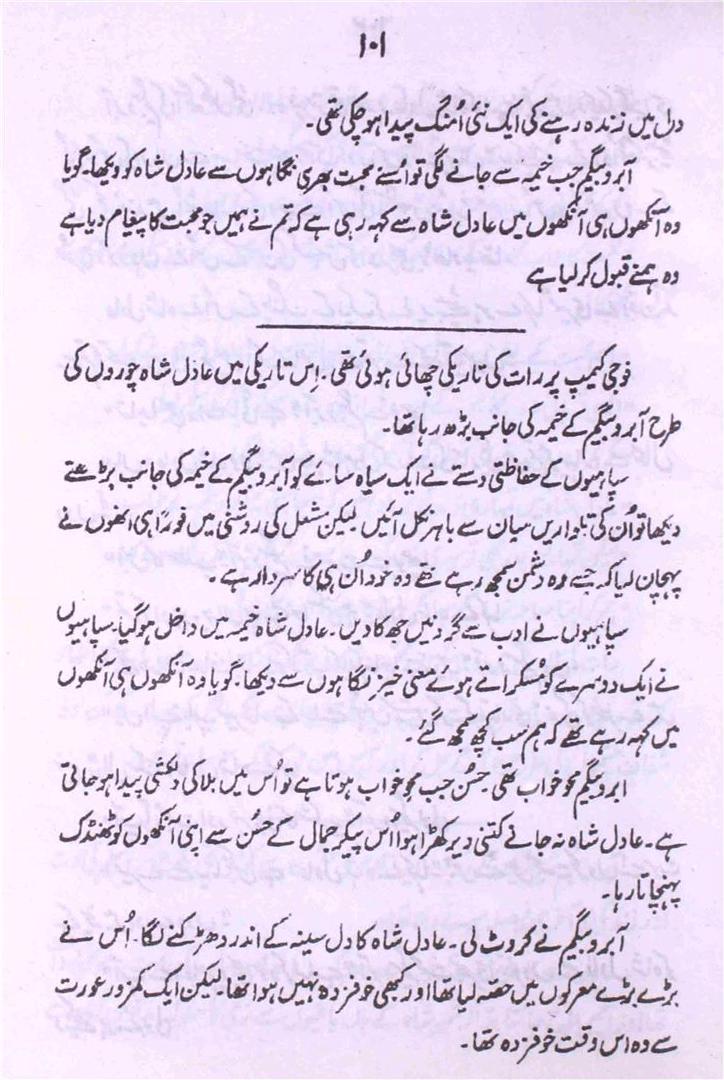 ۱۰۱
دل میں زندہ رہنے کی ایک نئی اُمنگ پیدا ہو چکی تھی۔
آبرو بیگم جب خیمہ سے جانے لگی تو اسنے محبت بھری نگاہوں سے عادل شاہ کو دیکھا۔ گویا
وہ آنکھوں ہی آنکھوں میں عادل شاہ سے کہہ رہی ہے کہ تم نے ہمیں جو محبت کا پیغام دیا ہے
وہ ہمنے قبول کر لیا ہے
فوجی کیمپ پر رات کی تاریکی چھائی ہوئی تھی۔ اِس تاریکی میں عادل شاہ چوروں کی
طرح آبرو بیگم کے خیمہ کی جانب بڑھ رہا تھا۔
سپاہیوں کے حفاظتی دستے نے ایک سیاہ سائے کو آبرو بیگم کے خیمہ کی جانب بڑھتے
دیکھا تو اُن کی تلواریں میان سے باہر نکل آئیں لیکن مشعل کی روشنی میں فوراً ہی انھوں نے
پہچان لیا کہ جسے وہ دشمن سمجھ رہے تھے وہ خود اُن ہی کا سردار ہے۔
سپاہیوں نے ادب سے گردنیں جھکا دیں۔ عادل شاہ خیمہ میں داخل ہو گیا۔ سپاہیوں
نے ایک دوسرے کو مُسکراتے ہوئے معنی خیز نگاہوں سے دیکھا۔ گویا وہ آنکھوں ہی آنکھوں
میں کہہ رہے تھے کہ ہم سب کچھ سمجھ گئے۔
ابرو بیگم محو خواب تھی حسُن جب محو خواب ہوتا ہے تو اُس میں بلا کی دلکشی پیدا ہو جاتی
ہے۔ عادل شاہ نہ جانے کتنی دیر کھڑا ہوا اُس پیکر جمال کے حسُن سے اپنی آنکھوں کو ٹھنڈک
پہنچاتا رہا۔
آبرو بیگم نے کروٹ لی۔ عادل شاہ کا دل سینہ کے اندر دھڑکنے لگا۔ اُس نے
بڑے بڑے معرکوں میں حصّہ لیا تھا اور کبھی خوفزدہ نہیں ہوا تھا لیکن ایک کمزور عورت
سے وہ اس وقت خوفزدہ تھا۔